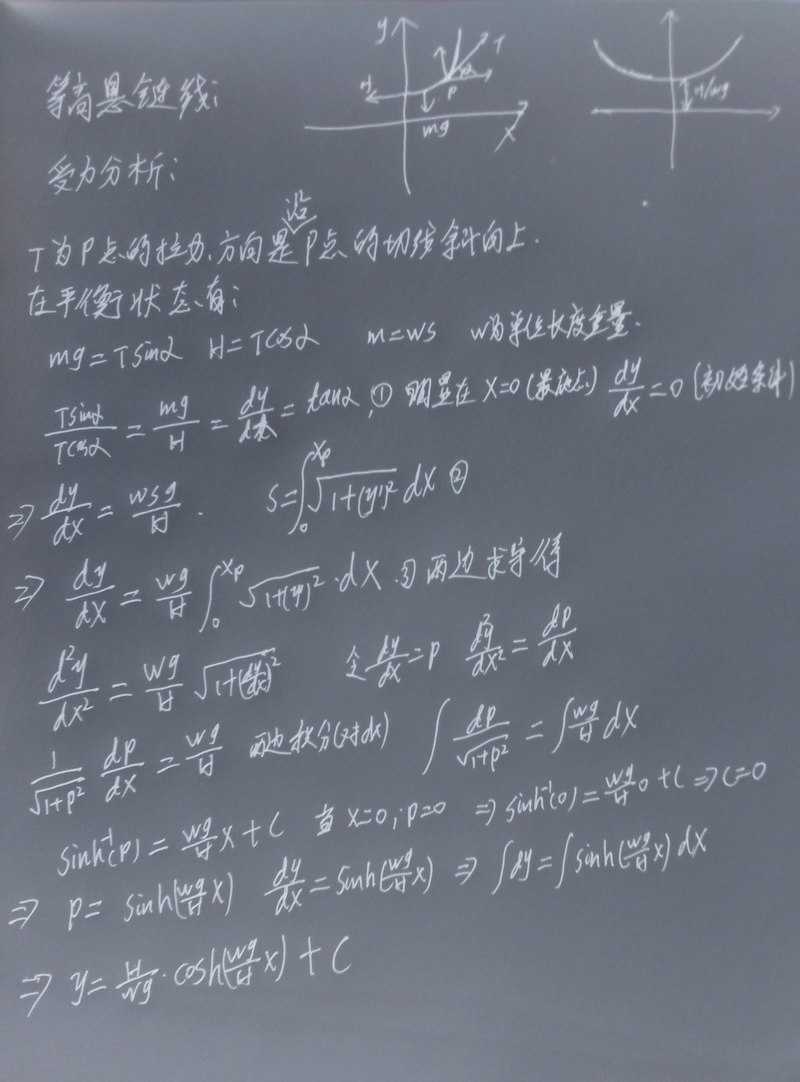 等高悬链线:
y H T α P mg X
H/wg
受力分析:
沿
T为P点的拉力,方向是P点的切线斜向上.
在平衡状态有:
mg=Tsinα H=Tcosα m=ws w为单位长度重量.
Tsinα/Tcosα = mg/H = dy/dx = tanα ,① 明显在 X=0 (最低点) dy/dx=0 (初始条件)
⇒ dy/dx = wsg/H . S=∫₀^Xp √(1+(y')²) dx ②
⇒ dy/dx = wg/H ∫₀^Xp √(1+(y')²) · dx ③ 两边求导得
d²y/dx² = wg/H √(1+(dy/dx)²) 令 dy/dx=p d²y/dx² = dp/dx
1/√(1+p²) dp/dx = wg/H 两边积分(对dx) ∫ dp/√(1+p²) = ∫ wg/H dx
sinh⁻¹(p) = wg/H x + C 当 x=0, p=0 ⇒ sinh⁻¹(0) = wg/H 0 + C ⇒ C=0
⇒ p = sinh(wg/H x) dy/dx = sinh(wg/H x) ⇒ ∫dy = ∫sinh(wg/H x) dx
⇒ y = H/wg · cosh(wg/H x) + C